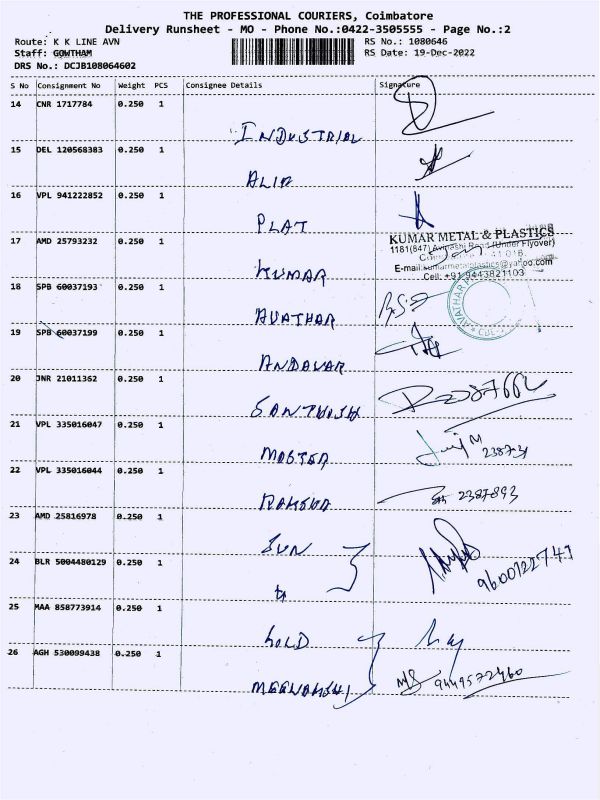 THE PROFESSIONAL COURIERS, Coimbatore
Delivery Runsheet - MO - Phone No.:0422-3505555 - Page No.:2
Route: K K LINE AVN RS No.: 1080646
Staff: GOWTHAM RS Date: 19-Dec-2022
DRS No.: DCJB108064602
S No Consignment No Weight PCS Consignee Details Signature
14 CNR 1717784 0.250 1
INDUSTRIAL
15 DEL 120568383 0.250 1
ALIP
16 VPL 941222852 0.250 1
PLAT
KUMAR METAL & PLASTICS
17 AMD 25793232 0.250 1 1181(847) Avinashi Road (Under Flyover)
E-mail:kumarmetalplastics@yahoo.com
KUMAR Cell: +91 9443821103
18 SPB 60037193 0.250 1
AVATHAR
19 SPB 60037199 0.250 1
ANDAVAR
20 JNR 21011362 0.250 1
SANTHOSH
21 VPL 335016047 0.250 1
MASTER 238731
22 VPL 335016044 0.250 1
RAKSHA 2387893
23 AMD 25816978 0.250 1
SUN
24 BLR 5004480129 0.250 1 9600122741
25 MAA 858773914 0.250 1
GOLD
26 AGH 530099438 0.250 1
MEENAKSHI 9449572460